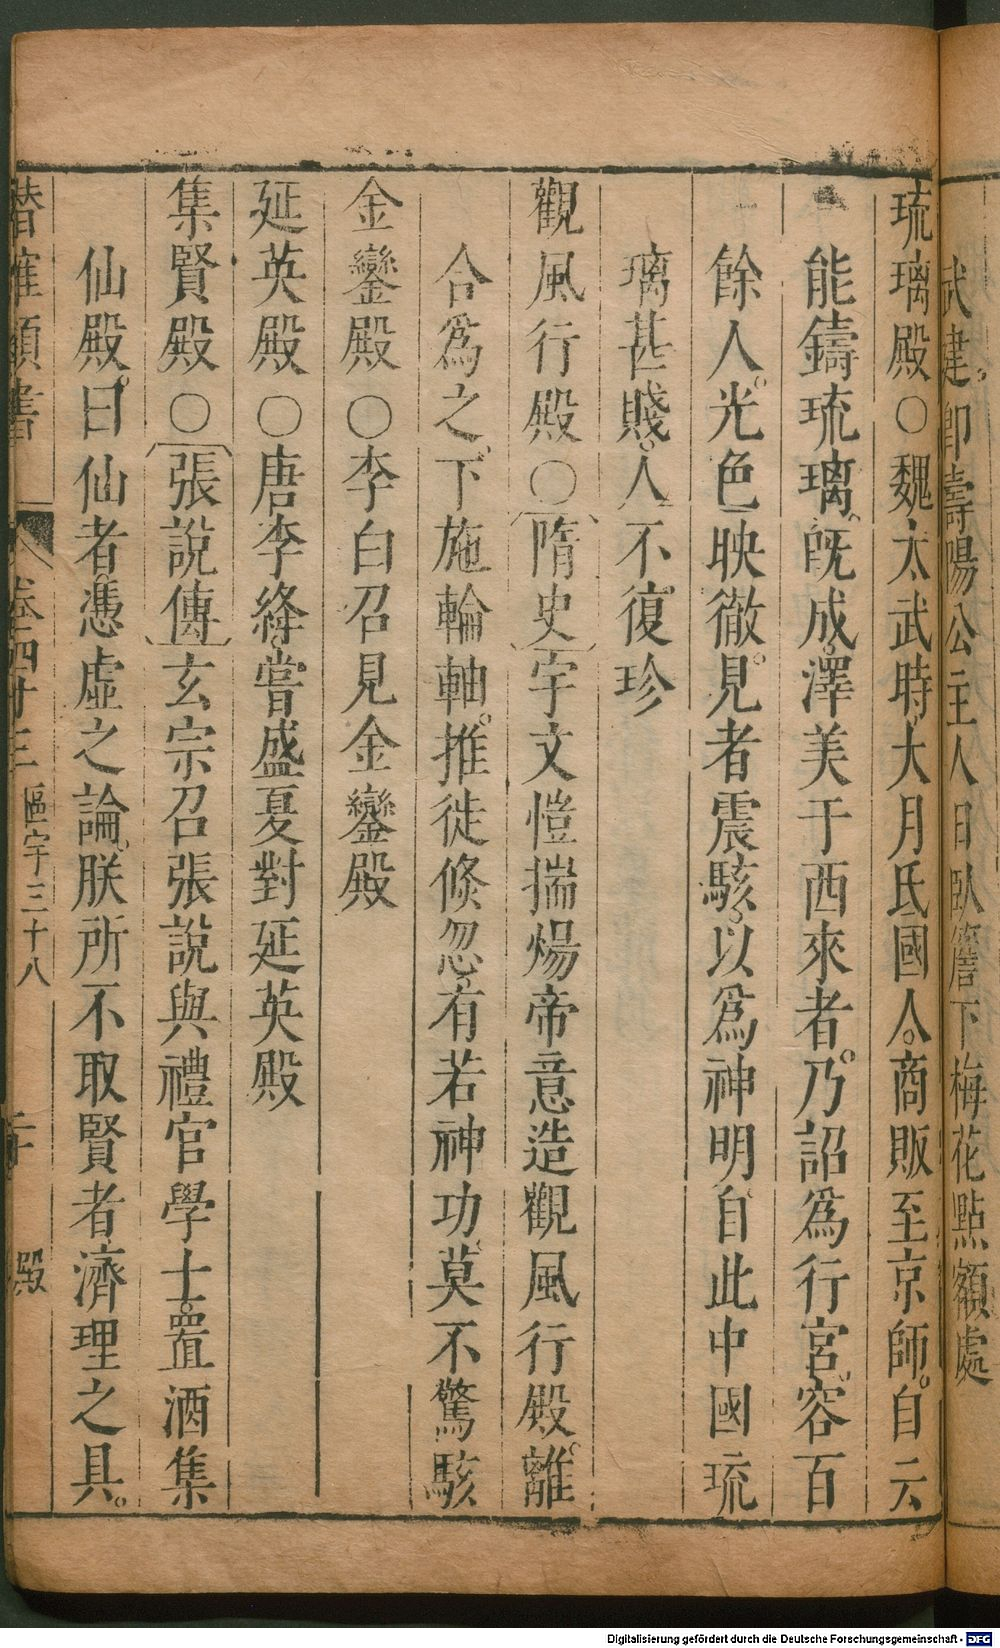 武建卽壽陽公主人日臥簷下梅花點額處
琉璃殿○魏太武時大月氏國人商販至京師自云
能鑄琉璃旣成澤美于西來者乃詔爲行宮容百
餘人光色映徹見者震駭以爲神明自此中國琉
璃甚賤人不復珍
觀風行殿○隋史宇文愷揣煬帝意造觀風行殿離
合爲之下施輪軸推徙倐忽有若神功莫不驚駭
金鑾殿○李白召見金鑾殿
延英殿○唐李絳嘗盛夏對延英殿
集賢殿○張說傳玄宗召張說與禮官學士置酒集
仙殿曰仙者憑虛之論朕所不取賢者濟理之具
潛確類書 卷四十三 區宇三十八 殿
Digitalisierung gefördert durch die Deutsche Forschungsgemeinschaft - DFG